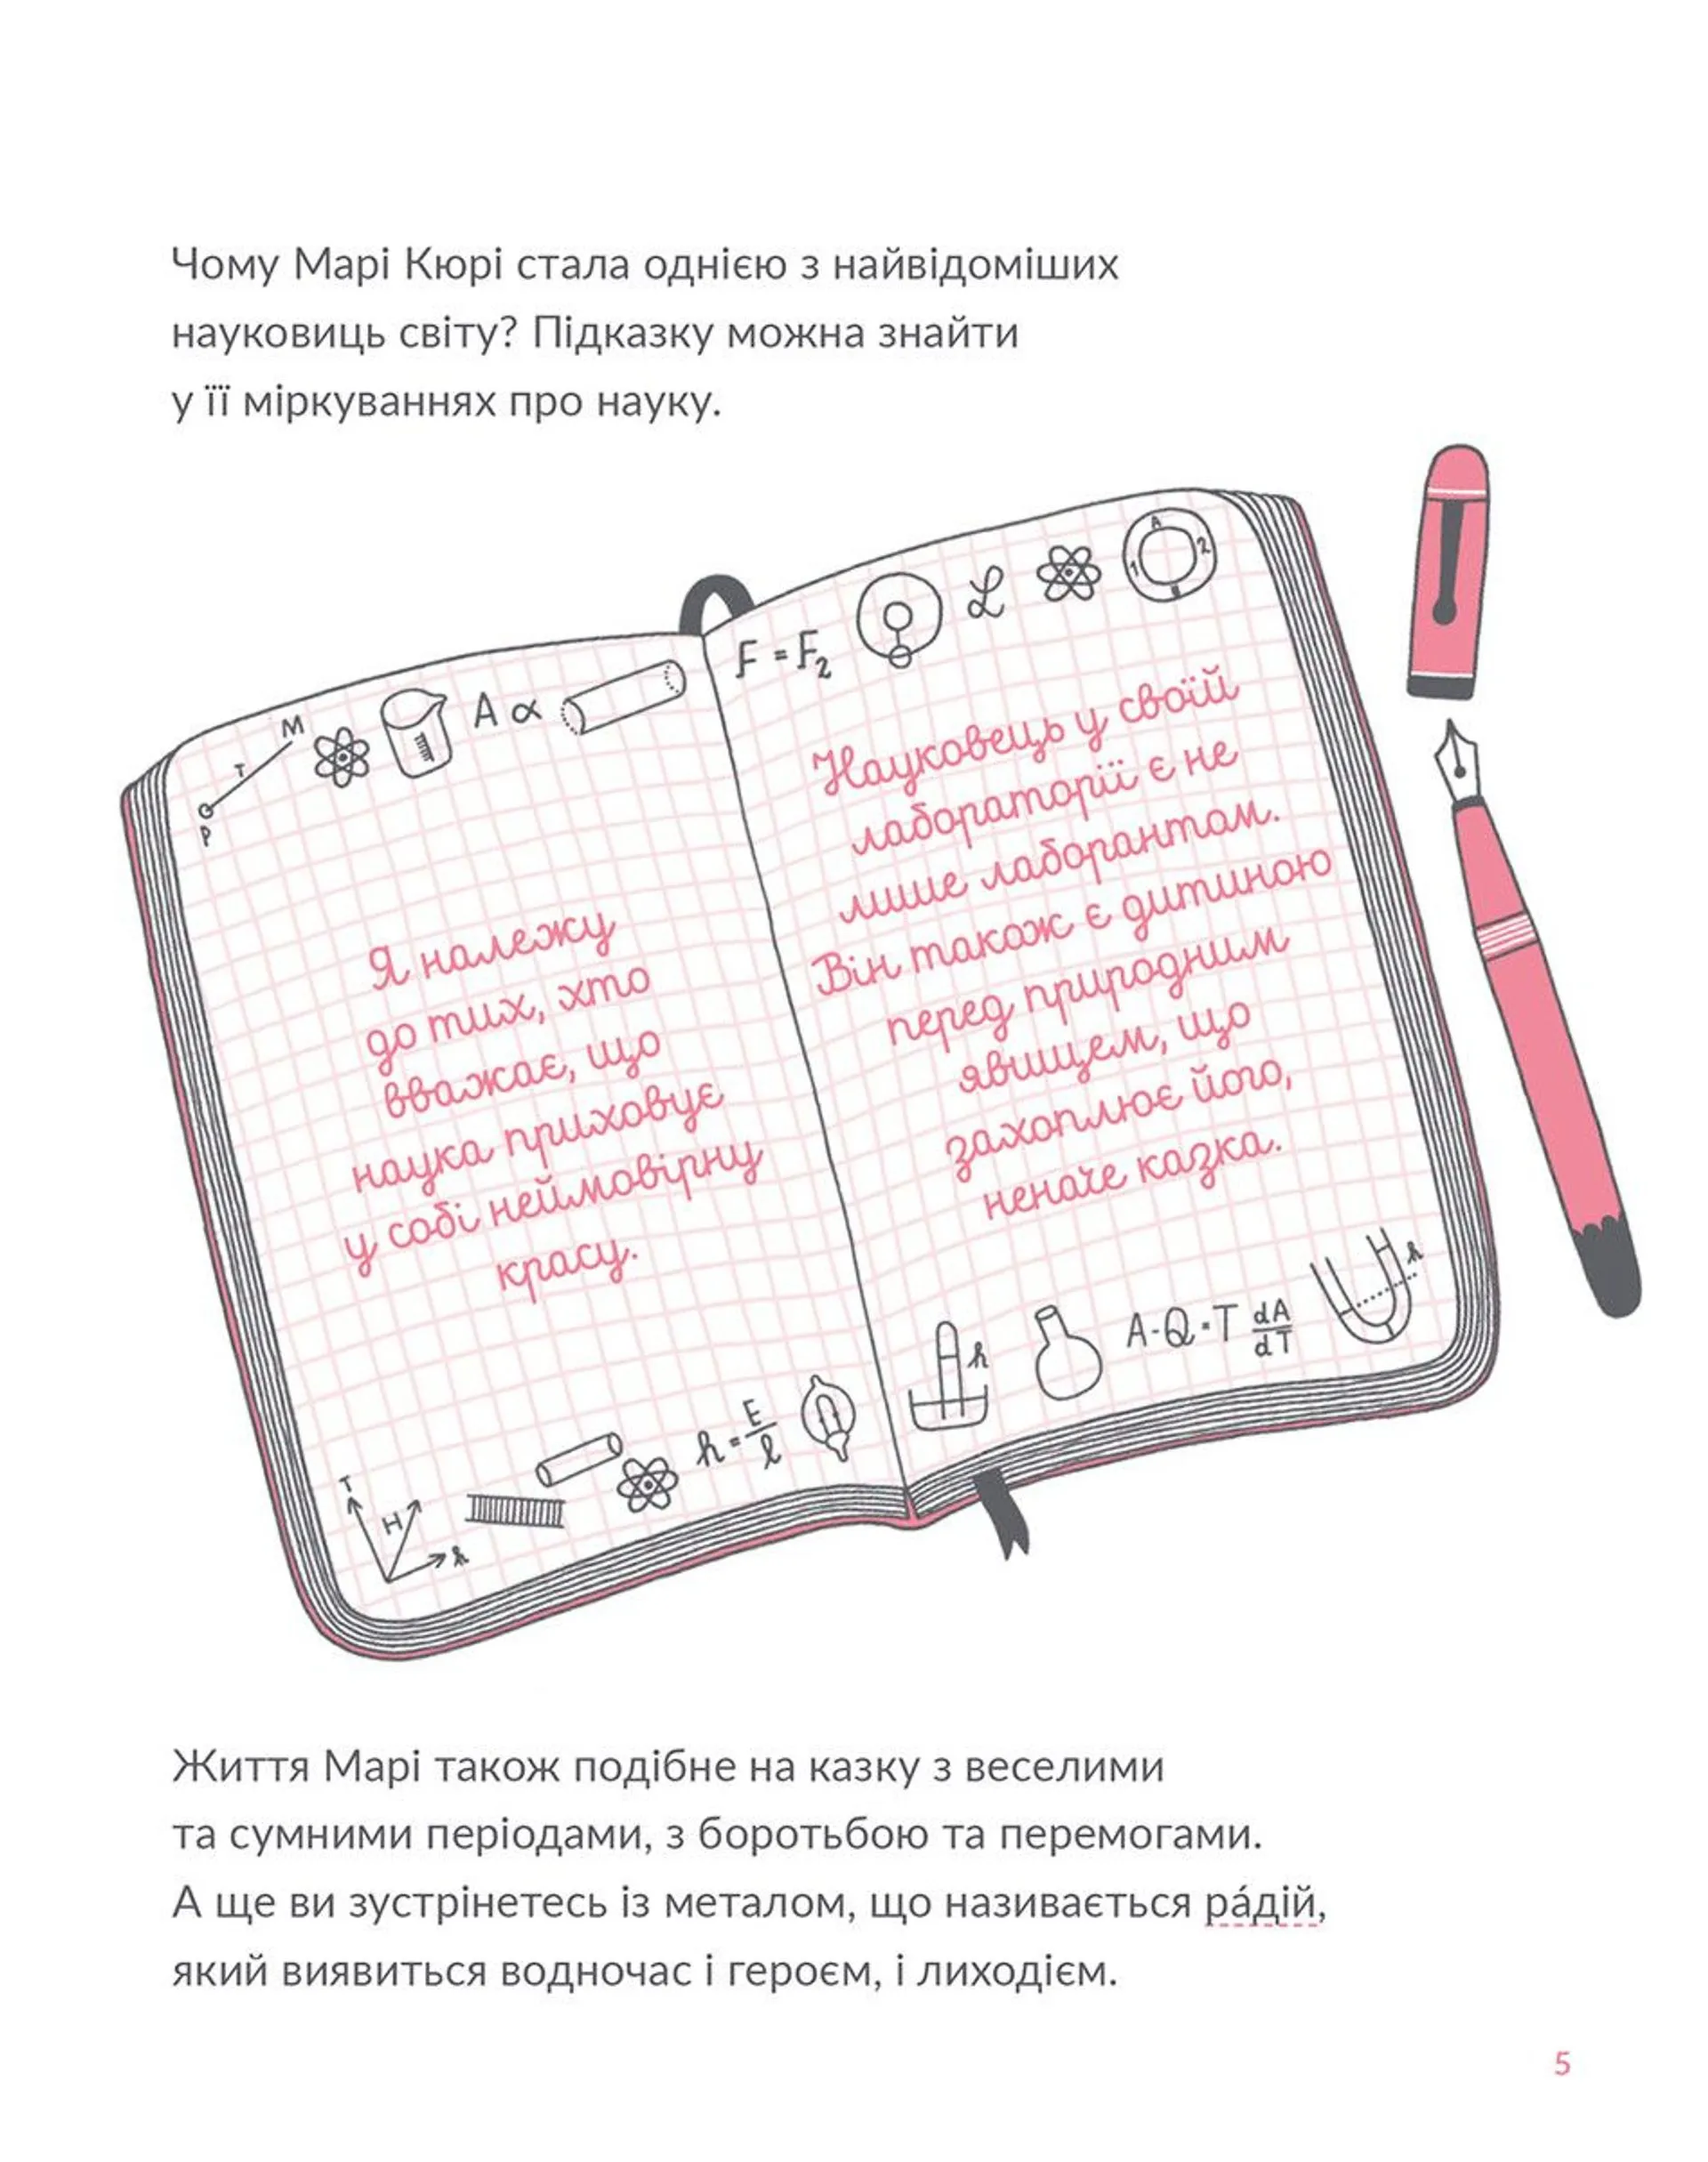 Чому Марі Кюрі стала однією з найвідоміших
науковиць світу? Підказку можна знайти
у її міркуваннях про науку.
M
T
P
A ∝
F = F₂
L
A
1
2
Я належу
до тих, хто
вважає, що
наука приховує
у собі неймовірну
красу.
Науковець у своїй
лабораторії є не
лише лаборантом.
Він також є дитиною
перед природним
явищем, що
захоплює його,
неначе казка.
T
H
h
h = E/l
h
A-Q=T dA/dT
h
Життя Марі також подібне на казку з веселими
та сумними періодами, з боротьбою та перемогами.
А ще ви зустрінетесь із металом, що називається ра́дій,
який виявиться водночас і героєм, і лиходієм.
5